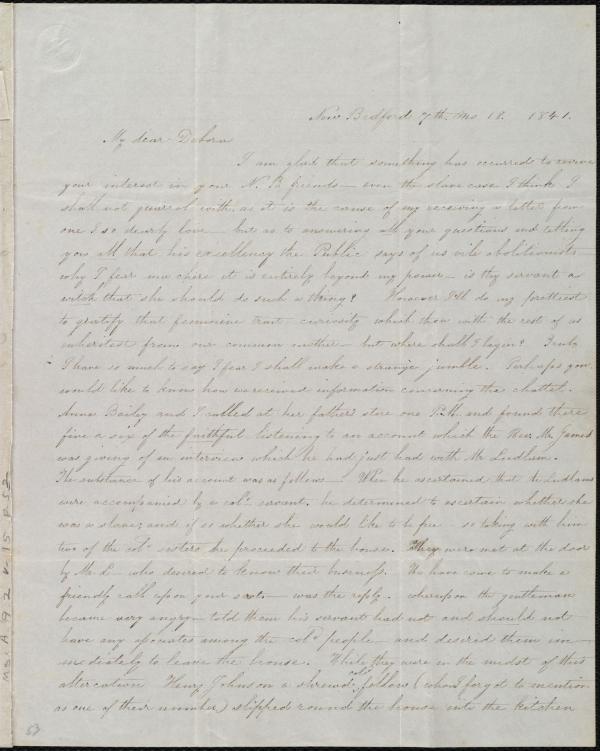 New Bedford 7th. Mo 18. 1841.
My dear Debora
I am glad that something has occurred to revive
your interest in your N. B. friends — even the slave case I think I
shall not quarrel with, as it is the cause of my receiving a letter from
one I so dearly love — but as to answering all your questions and telling
you all that his excellency the Public says of us vile abolitionists
why I fear ma chere it is entirely beyond my power — is thy servant a
witch that she should do such a thing? However I'll do my prettiest
to gratify that feminine trait curiosity which thou with the rest of us
inheritest from our common mother — but where shall I begin? Truly
I have so much to say I fear I shall make a strange jumble. Perhaps you
would like to know how we received information concerning the chattel.
Anna Bailey and I called at her father's store one P.M. and found there
five or six of the faithful listening to an account which the Rev. Mr. James
was giving of an interview which he had just had with Mr Ludlam.
The substance of his account was as follows — When he ascertained that the Ludlams
were accompanied by a cold. servant, he determined to ascertain whether she
was a slave, and if so whether she would like to be free — so taking with him
two of the cold. sisters he proceeded to the house. They were met at the door
by Mr. L— who desired to know their business. We have come to make a
friendly call upon your servt.— was the reply. whereupon the gentleman
became very angry — told them his servant had not and should not
have any asociates among the cold. people — and desired them im-
mediately to leave the house. While they were in the midst of this
altercation Henry Johnson a shrewd cold. fellow (whom I forgot to mention
as one of their number) slipped round the house into the kitchen
Ms. A. 9.2 v. 15 p. 53
53